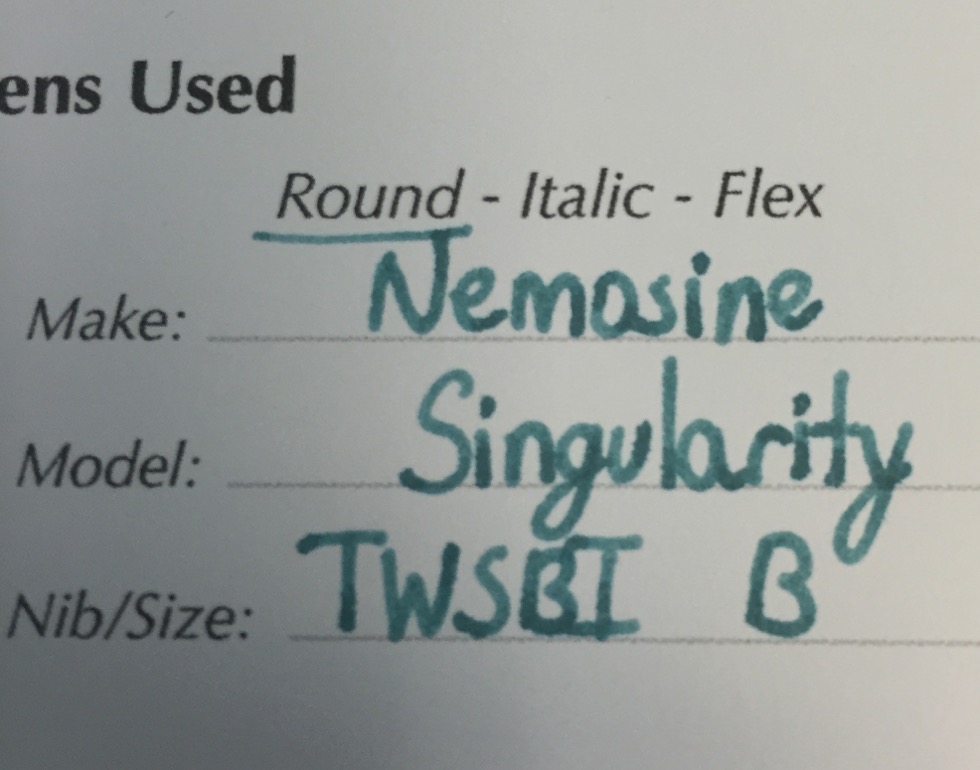 ens Used
Round - Italic - Flex
Make: Nemosine
Model: Singularity
Nib/Size: TWSBI B